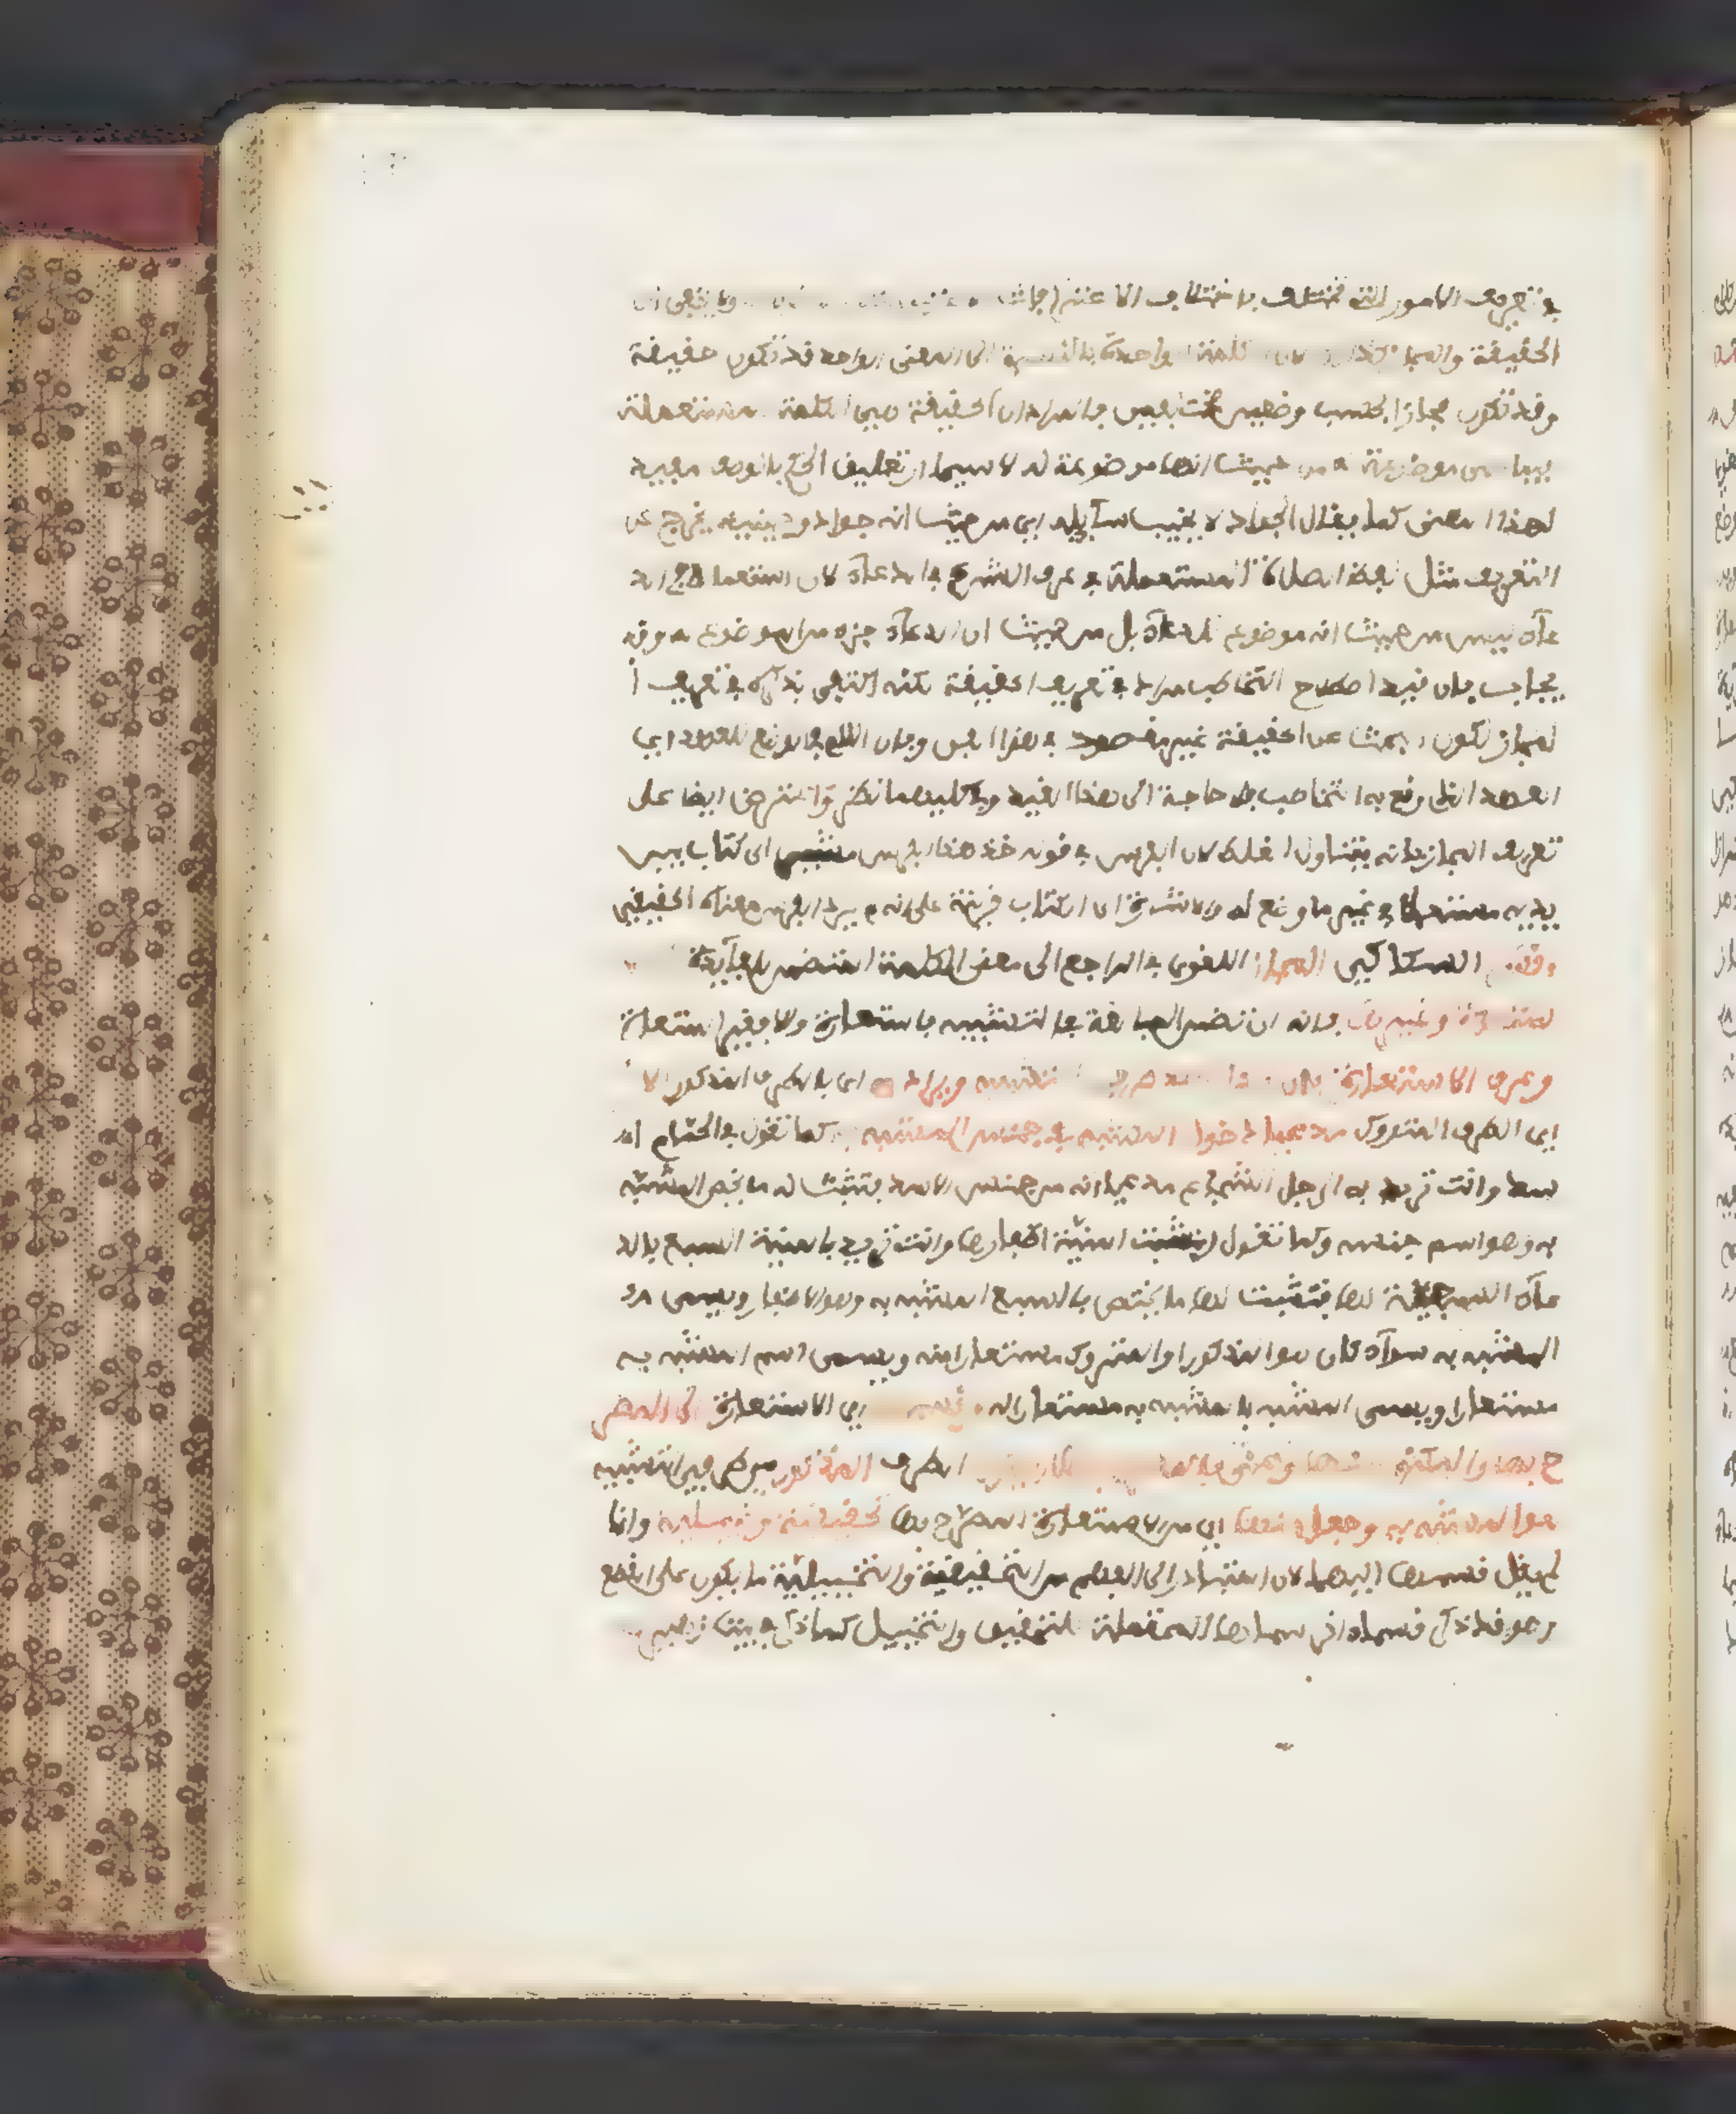 في تعريف الامور التي تختلف باختلاف الاعتبارات ولا يخفى ان
الحقيقة والمجاز كذلك لان الكلمة الواحدة بالنسبة الى المعنى الواحد قد تكون حقيقة
وقد تكون مجازا بحسب وضعين مختلفين فالمراد ان الحقيقة هي الكلمة المستعملة
فيما هي موضوعة له من حيث انها موضوعة له لا سيما ان تعليق الحكم بالوصف مفيد
لهذا المعنى كما يقال الجواد لا يخيب سائله اي من حيث انه جواد و يخرج عن
التعريف مثل لفظ الصلاة المستعملة في عرف الشرع في الدعاء لان استعماله في الد
عاء ليس من حيث انه موضوع للدعاء بل من حيث ان الدعاء جزء من الموضوع له وقد
يجاب بان قيد اصطلاح التخاطب مراد في تعريف الحقيقة لكنه اكتفى بذكره في تعريف ا
لمجاز لكون البحث عن الحقيقة غير مقصود في هذا الفن وبان اللام في الوضع للعهد اي
العهد الذي وقع به التخاطب فلا حاجة الى هذا القيد وفي كليهما نظر واعترض ايضا على
تعريف المجاز بانه يتناول الغلط لان الفرس في قوله خذ هذا الفرس مشيرا الى كتاب بين
يديه مستعمل في غير ما وضع له والاشارة الى الكتاب قرينة على انه لم يرد بالفرس معناه الحقيقي
وقسم السكاكي المجاز اللغوي الراجع الى معنى الكلمة المتضمن للفائدة
استعارة وغيرها بانه ان تضمن المبالغة في التشبيه فاستعارة والا فغير استعارة
وعرف الاستعارة بان تذكر احد طرفي التشبيه وتريد به اي بالطرف المذكور الا
اي الطرف المتروك مدعيا دخول المشبه في جنس المشبه به كما تقول في الحمام ا
سد وانت تريد به الرجل الشجاع مدعيا انه من جنس الاسد فتثبت له ما يخص المشبه
به وهو اسم جنسه وكما تقول انشبت المنية اظفارها وانت تريد بالمنية السبع باد
عاء السبعية لها فتثبت لها ما يختص بالسبع المشبه به وهو الاظفار ويسمى
المشبه به سواء كان هو المذكور او المتروك مستعارا منه ويسمى اسم المشبه به
مستعارا ويسمى المشبه بالمشبه به مستعارا له وقسمها اي الاستعارة الى المصر
ح بها والمكنى عنها وعنى بالمصرح بها ان يكون الطرف المذكور من طرفي التشبيه
هو المشبه به وجعل منها اي من الاستعارة المصرح بها تحقيقية وتخييلية وانما
لم يقل قسمها اليهما لان المتبادر الى الفهم من التحقيقية والتخييلية ما يكون على القطع
وهو قد ذكر قسما اخر سماها المحتملة للتحقيق والتخييل كما ذكر في بيت زهير